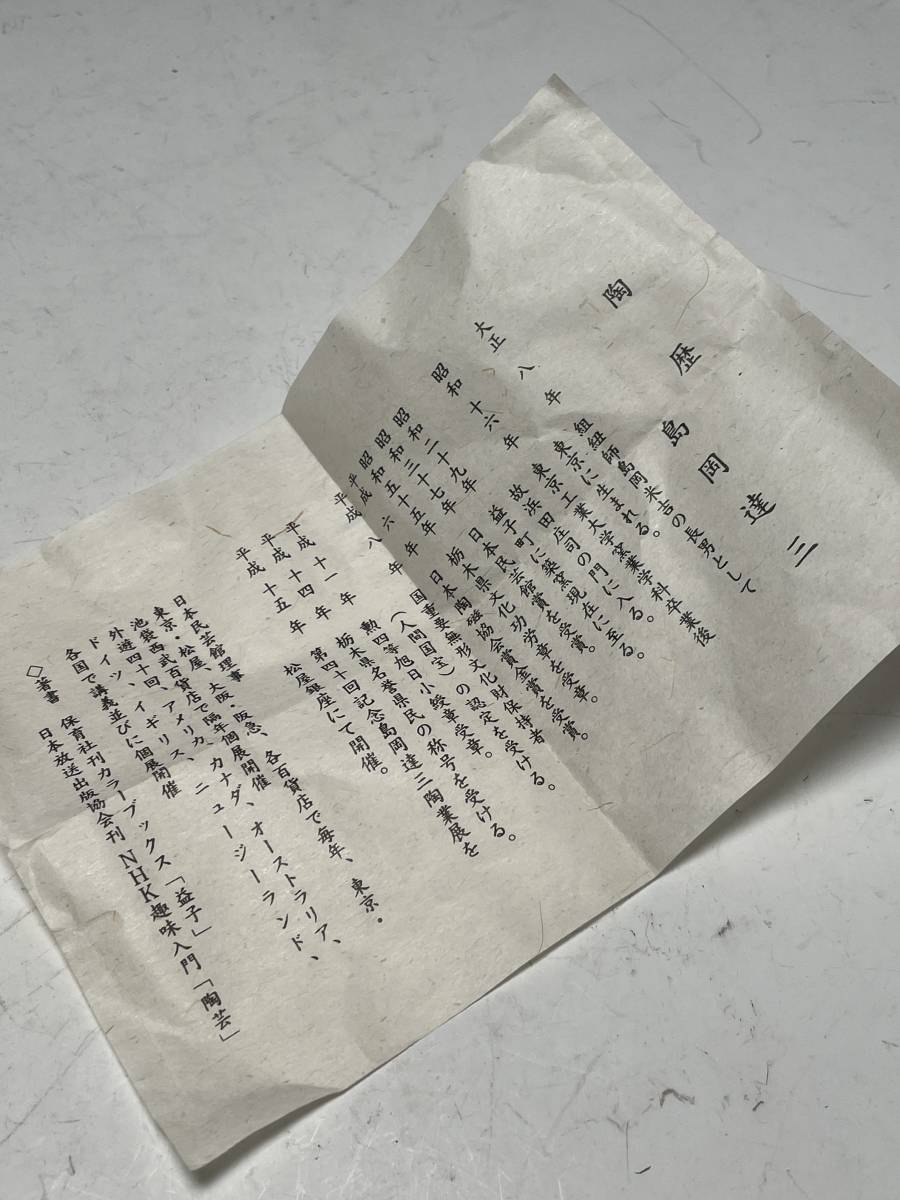 陶歴 島岡達三
大正八年 組紐師島岡米吉の長男として
東京に生まれる。
昭和十六年 東京工業大学窯業学科卒業後
故浜田庄司の門に入る。
昭和二十九年 益子町に築窯現在に至る。
昭和三十七年 日本民芸館賞を受賞。
昭和五十五年 栃木県文化功労章を受章。
平成六年 日本陶磁協会賞金賞を受賞。
平成八年 国重要無形文化財保持者
(人間国宝)の認定を受ける。
平成十一年 勲四等旭日小綬章受章。
平成十四年 栃木県名誉県民の称号を受ける。
平成十五年 第四十回記念島岡達三陶業展を
松屋銀座にて開催。
日本民芸館理事
東京・松屋、大阪・阪急、各百貨店で毎年、東京・
池袋西武百貨店で隔年個展開催
外遊四十回、アメリカ、カナダ、オーストラリア、
ドイツ、イギリス、ニュージーランド、
各国で講義並びに個展開催
◇著書 保育社刊カラーブックス「益子」
日本放送出版協会刊 NHK趣味入門「陶芸」